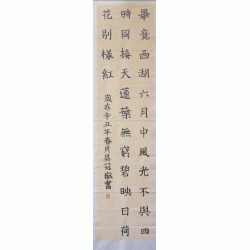 畢竟西湖六月中風光不與四
時同接天蓮葉無窮碧映日荷
花別樣紅
歲在辛丑年春月吳冠樹書